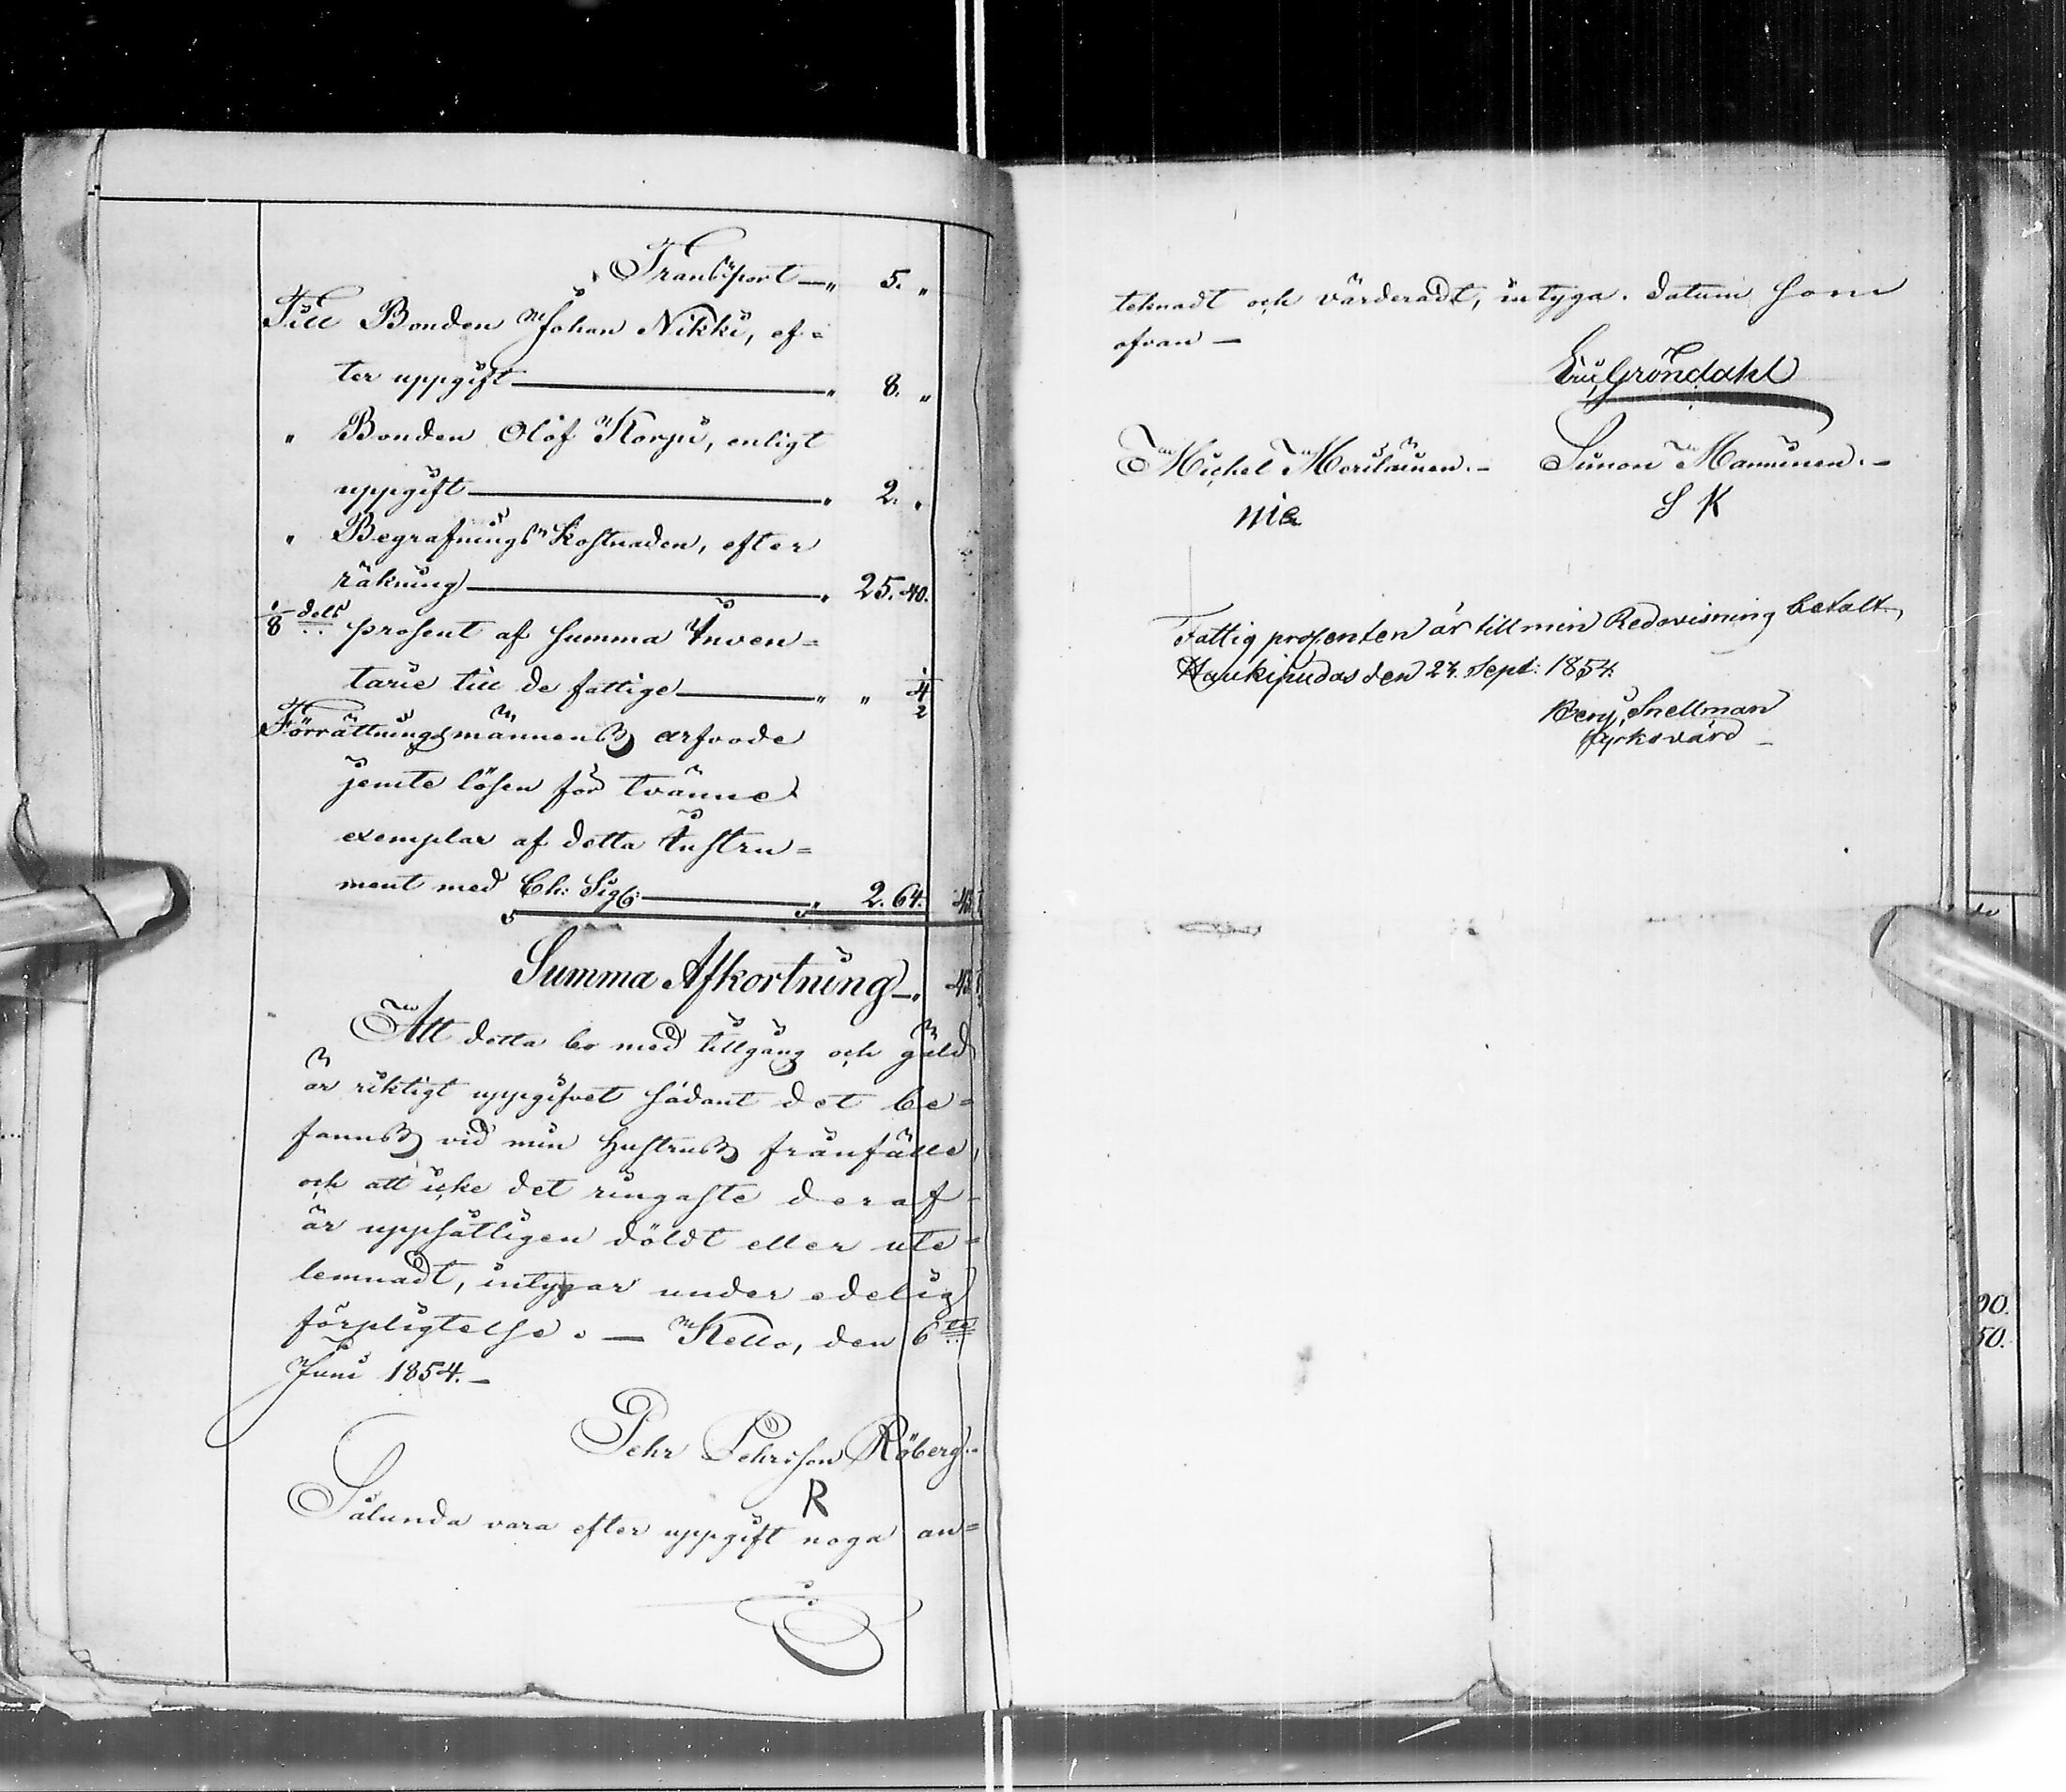 Transport — „ 5. „
Till Bonden Johan Nikki, ef=
ter uppgift — „ 8. „
„ Bonden Olof Korpi, enligt
uppgift — „ 2. „
„ Begrafnings Kostnaden, efter
räkning — „ 25. 40.
1/8 dels prosent af summa Inven=
tarie till de fattige — „ „ 4 1/2
Förrättningsmännens arfvode
jemte lösen för tvänne
exemplar af detta Instru=
ment med Ch: Sigl: — „ 2. 64.
Summa Afkortning —
Att detta bo med tillgång och gäld
är riktigt uppgifvet sådant det be=
fanns vid min hustrus frånfälle,
och att icke det ringaste deraf
är uppsåtligen döldt eller ute=
lemnadt, intygar under edelig
förpligtelse. — Kello, den 6te
Juni 1854. —
Pehr Pehrsson Röberg.
R
Sålunda vara efter uppgift noga an=
teknadt och värderadt, intyga. Datum som
ofvan —
Gröndahl
Michel Morilainen. — Simon Manninen. —
S K
Fattig prosenten är till min Redovisning betalt,
Haukipudas den 27. Sept: 1854.
Benj. Snellman
Kyrkovärd —
90.
50.